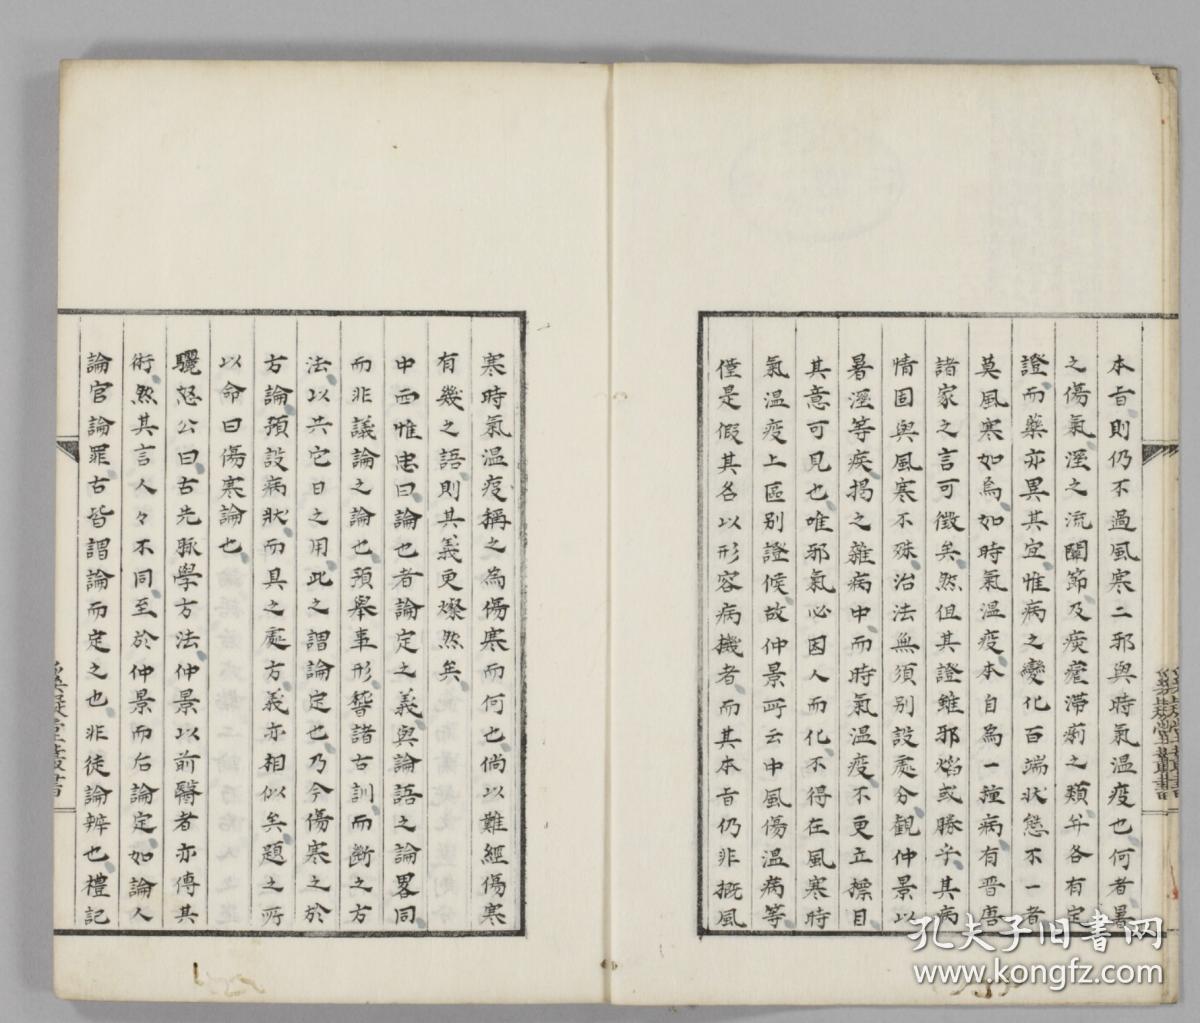 本旨則仍不過風寒二邪與時氣溫疫也何者暑
之傷氣溼之流關節及瘧滯痢之類并各有定
證而藥亦異其宜惟病之變化百端狀態不一者
莫風寒如焉如時氣溫疫本自為一種病有晉唐
諸家之言可徵矣然但其證雖邪焰或勝乎其病
情固與風寒不殊治法無須別設處分觀仲景以
暑溼等疾揭之雜病中而時氣溫疫不更立標目
其意可見也唯邪氣必因人而化不得在風寒時
氣溫疫上區別證候故仲景所云中風傷溫病等
僅是假其名以形容病機者而其本旨仍非概風
寒時氣溫疫稱之為傷寒而何也倘以難經傷寒
有幾之語則其義更燦然矣
中西惟忠曰論也者論定之義與論語之論畧同
而非議論之論也預舉事形諸古訓而斷之方
法以共它日之用此之謂論定也乃今傷寒之於
方論預設病狀而具之處方義亦相似矣題之所
以命曰傷寒論也
驪恕公曰古先脈學方法仲景以前醫者亦傳其
術然其言人々不同至於仲景而后論定如論人
論官論罪古皆謂論而定之也非徒論辨也禮記
孔夫子旧书网
www.kongfz.com